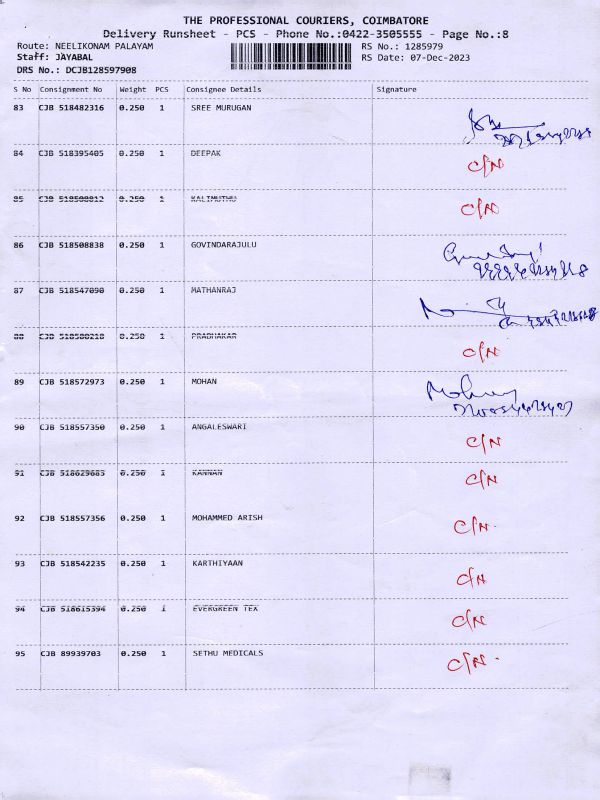 THE PROFESSIONAL COURIERS, COIMBATORE
Delivery Runsheet - PCS - Phone No.:0422-3505555 - Page No.:8
Route: NEELIKONAM PALAYAM RS No.: 1285979
Staff: JAYABAL RS Date: 07-Dec-2023
DRS No.: DCJB128597908
S No Consignment No Weight PCS Consignee Details Signature
83 CJB 518482316 0.250 1 SREE MURUGAN
84 CJB 518395405 0.250 1 DEEPAK C/N
85 CJB 518508812 0.250 1 KALIMUTHU C/N
86 CJB 518508838 0.250 1 GOVINDARAJULU
87 CJB 518547090 0.250 1 MATHANRAJ
88 CJB 518508218 0.250 1 PRABHAKAR C/N
89 CJB 518572973 0.250 1 MOHAN Mohan
90 CJB 518557350 0.250 1 ANGALESWARI C/N
91 CJB 518629683 0.250 1 KANNAN C/N
92 CJB 518557356 0.250 1 MOHAMMED ARISH C/N.
93 CJB 518542235 0.250 1 KARTHIYAAN C/N
94 CJB 518615394 0.250 1 EVERGREEN TEX C/N
95 CJB 89939703 0.250 1 SETHU MEDICALS C/N.